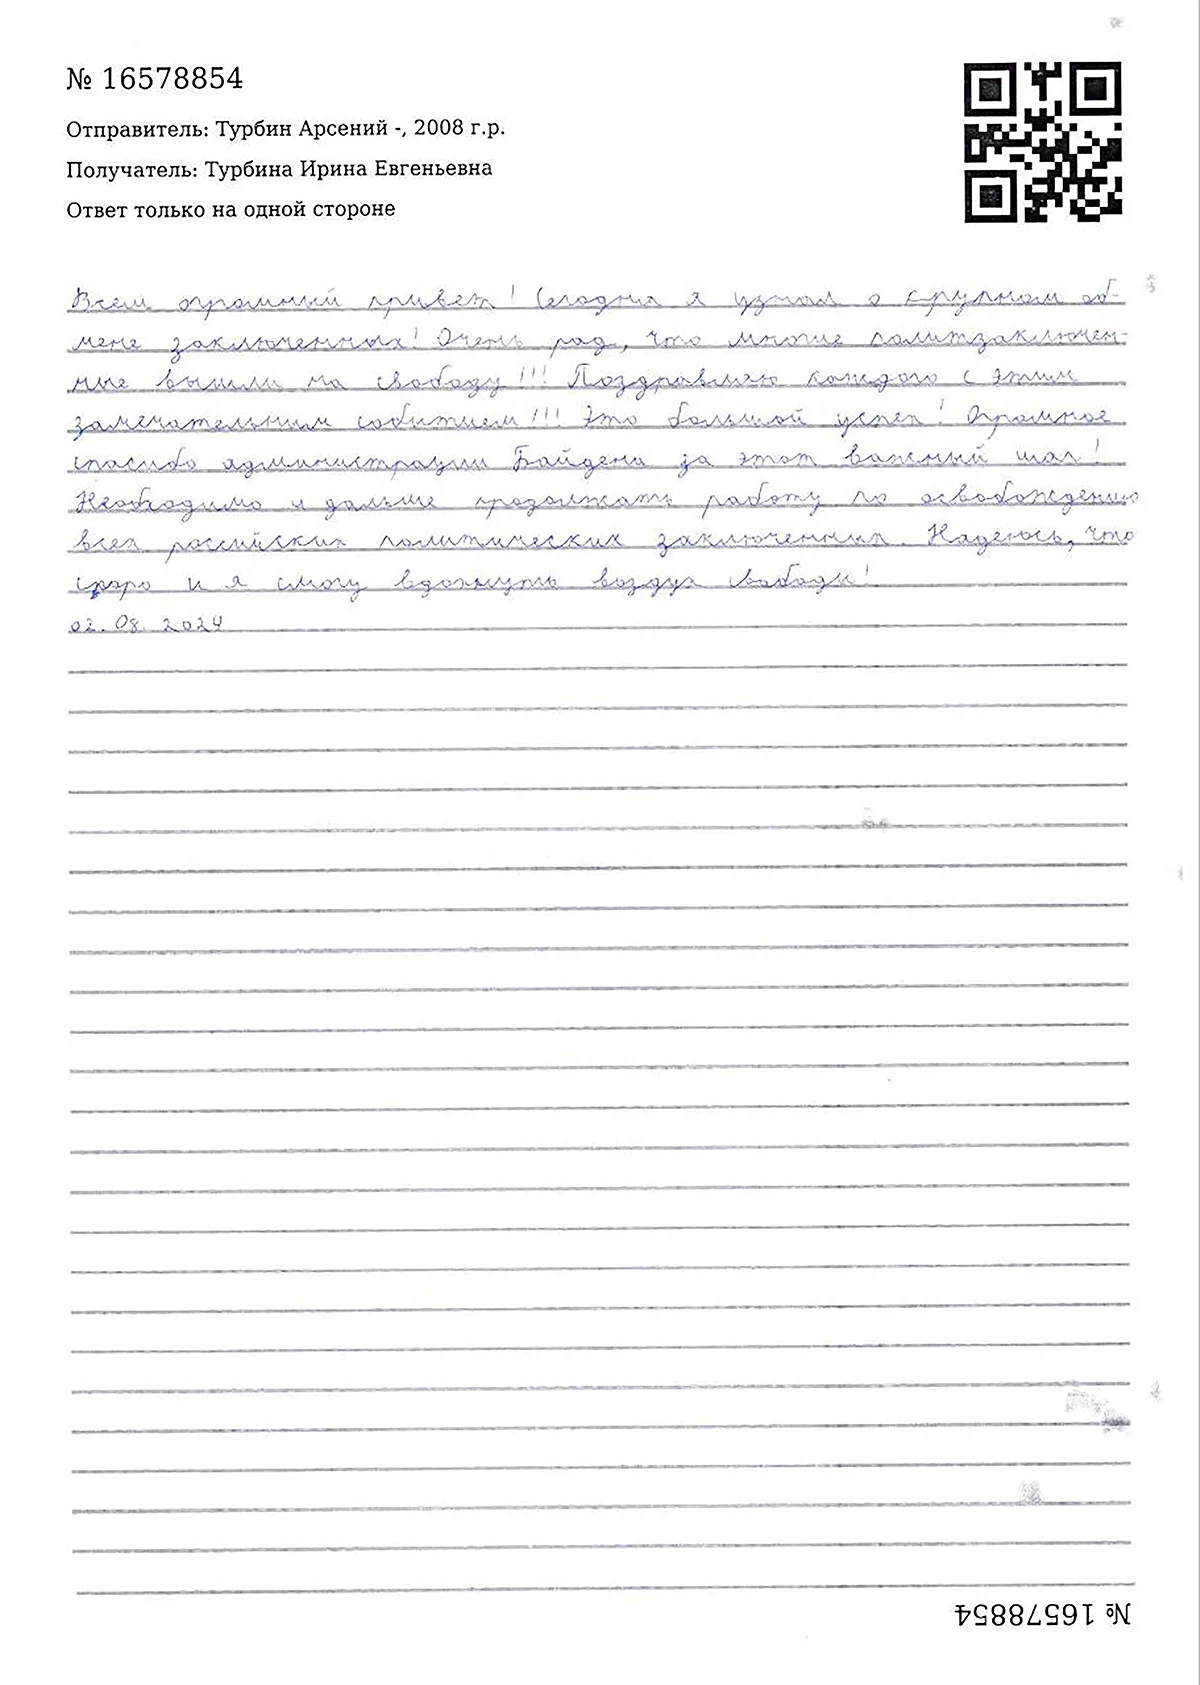 № 16578854
Отправитель: Турбин Арсений -, 2008 г.р.
Получатель: Турбина Ирина Евгеньевна
Ответ только на одной стороне
Всем огромный привет! Сегодня я узнал о крупном об-
мене заключенных! Очень рад, что многие политзаключен-
ные вышли на свободу!!! Поздравляю каждого с этим
замечательным событием!!! Это большой успех! Огромное
спасибо администрации Байдена за этот важный шаг!
Необходимо и дальше продолжать работу по освобождению
всех российских политических заключенных. Надеюсь, что
скоро и я смогу вдохнуть воздух свободы!
02.08.2024
№ 16578854